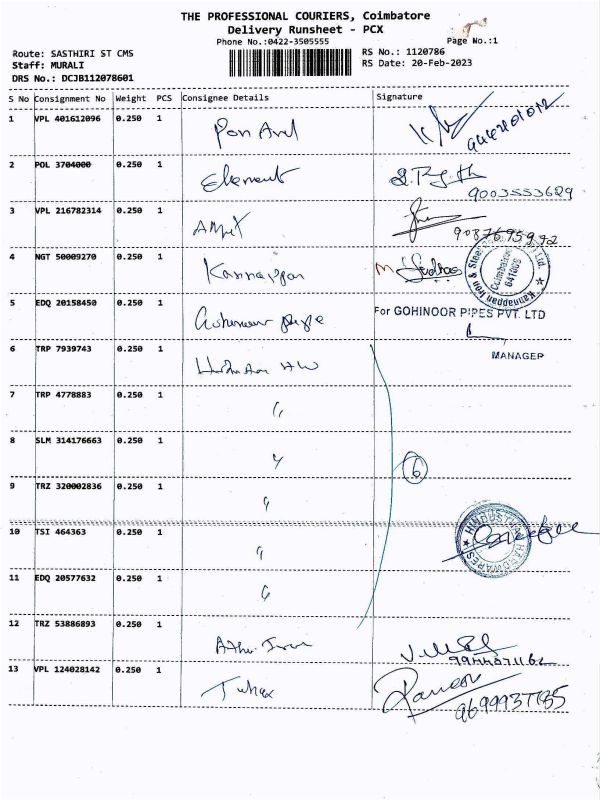 THE PROFESSIONAL COURIERS, Coimbatore
Delivery Runsheet - PCX
Phone No.:0422-3505555
Page No.:1
Route: SASTHIRI ST CMS
Staff: MURALI
DRS No.: DCJB112078601
RS No.: 1120786
RS Date: 20-Feb-2023
S No Consignment No Weight PCS Consignee Details Signature
1 VPL 401612096 0.250 1
2 POL 3704000 0.250 1 Element
9003553629
3 VPL 216782314 0.250 1
4 NGT 50009270 0.250 1 Kannappan
Kannappan Iron & Steel Pvt. Ltd. Coimbatore 641009
5 EDQ 20158450 0.250 1
For GOHINOOR PIPES PVT. LTD
MANAGER
6 TRP 7939743 0.250 1
7 TRP 4778883 0.250 1 "
8 SLM 314176663 0.250 1 "
6
9 TRZ 320002836 0.250 1 "
10 TSI 464363 0.250 1 "
HINDUSTAN HARDWARES
11 EDQ 20577632 0.250 1 "
12 TRZ 53886893 0.250 1
13 VPL 124028142 0.250 1